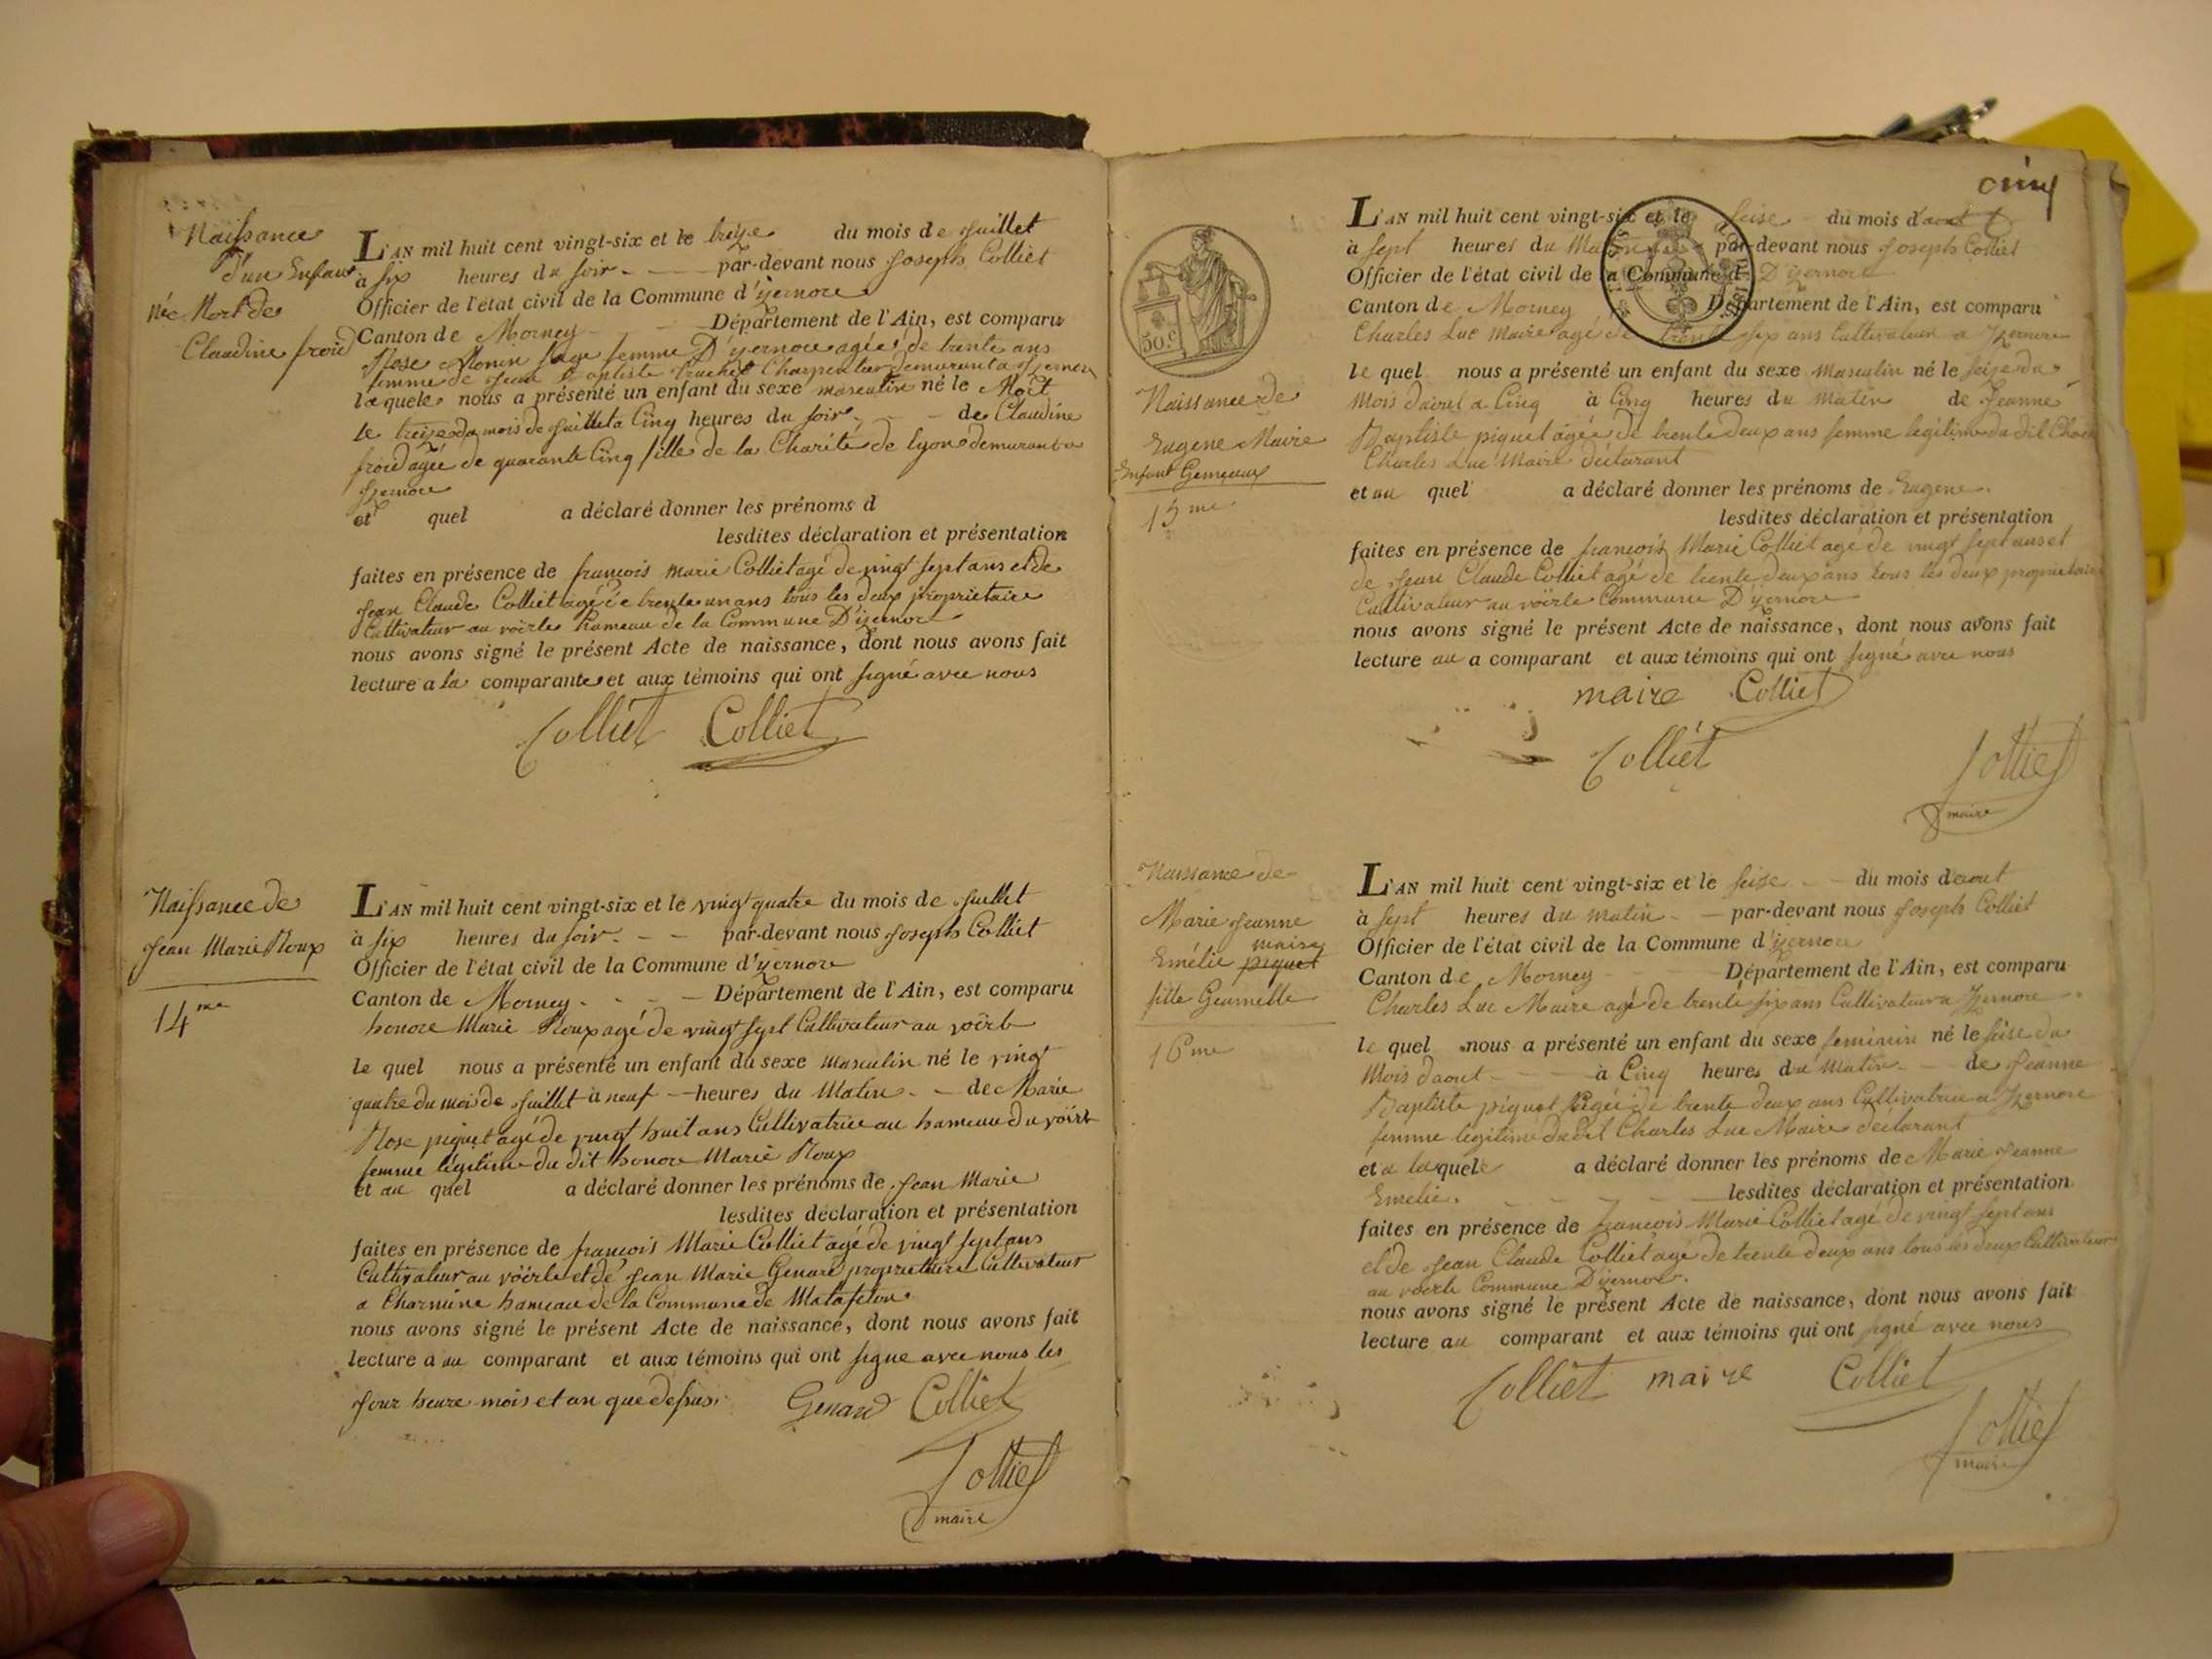 Naissance
d'un Enfant
Née Mort de
Claudine froid
L'AN mil huit cent vingt-six et le treize du mois de Juillet
à six heures du soir - par-devant nous Joseph Colliet
Officier de l'état civil de la Commune d'yzernore
Canton de Morney - Département de l'Ain, est comparu
Rose Monin sage femme D'yzernore agée de trente ans
femme de Jean Baptiste Charpentier demurant a
laquele nous a présenté un enfant du sexe masculin né le Mort
le treize du mois de Juillet a Cinq heures du soir - de Claudine
froid agée de quarante Cinq fille de la Charité de lyon demurant a
Izernore
et quel a déclaré donner les prénoms d
lesdites déclaration et présentation
faites en présence de françois Marie Colliet agé de vingt sept ans et de
Jean Claude Colliet agé de trente un ans tous les deux propriétaire
Cultivateur au voërle hameau de la Commune D'izernore
nous avons signé le présent Acte de naissance, dont nous avons fait
lecture a la comparante et aux témoins qui ont signé avec nous
Colliet Colliet
Naissance de
Jean Marie Roux
14me
L'AN mil huit cent vingt-six et le vingt quatre du mois de Juillet
à six heures du soir - par-devant nous Joseph Colliet
Officier de l'état civil de la Commune d'yzernore
Canton de Morney - Département de l'Ain, est comparu
honore Marie Roux agé de vingt sept Cultivateur au voërle
le quel nous a présenté un enfant du sexe masculin né le vingt
quatre du mois de Juillet à neuf - heures du Matin - de Marie
Rose piquet agé de vingt huit ans Cultivatrice au hameau du voërle
femme légitime du dit honore Marie Roux
et au quel a déclaré donner les prénoms de Jean Marie
lesdites déclaration et présentation
faites en présence de françois Marie Colliet agé de vingt sept ans
Cultivateur au voërle et de Jean Marie Genard propriétaire Cultivateur
a Charmine hameau de la Commune de Matafelon
nous avons signé le présent Acte de naissance, dont nous avons fait
lecture a au comparant et aux témoins qui ont signe avec nous les
Jour heure mois et an que dessus. Genard Colliet
Colliet
maire
cinq
50 c
Naissance de
Eugene Maire
Enfant Gemeaux
15me
L'AN mil huit cent vingt-six et le seise du mois d'aout
à sept heures du Matin par-devant nous Joseph Colliet
Officier de l'état civil de la Commune d D'izernore
Canton de Morney Département de l'Ain, est comparu
Charles Luc Maire agé de trente six ans Cultivateur a Izernore
le quel nous a présenté un enfant du sexe Masculin né le seize du
mois d'aout a Cinq à Cinq heures du Matin de Jeanne
Baptiste piquet agée de trente deux ans femme légitime du dit
Charles Luc Maire déclarant
et au quel a déclaré donner les prénoms de Eugene.
lesdites déclaration et présentation
faites en présence de françois Marie Colliet agé de vingt sept ans et
de Jean Claude Colliet agé de trente deux ans tous les deux propriétaire
Cultivateur au voërle Commune D'yzernore
nous avons signé le présent Acte de naissance, dont nous avons fait
lecture au a comparant et aux témoins qui ont signé avec nous
maire Colliet
Colliet
Colliet
maire
Naissance de
Marie Jeanne
maire
Emélie piquet
fille Geumelle
16me
L'AN mil huit cent vingt-six et le seise - du mois d'aout
à sept heures du matin - par-devant nous Joseph Colliet
Officier de l'état civil de la Commune d'izernore
Canton de Morney - Département de l'Ain, est comparu
Charles Luc Maire agé de trente six ans Cultivateur a Izernore
le quel nous a présenté un enfant du sexe feminin né le seise du
Mois d'aout - à Cinq heures du Matin - de Jeanne
Baptiste piquet agée de trente deux ans Cultivatrice a Izernore
femme légitime dudit Charles Luc Maire déclarant
et a laquele a déclaré donner les prénoms de Marie Jeanne
Emelie. - lesdites déclaration et présentation
faites en présence de françois Marie Colliet agé de vingt sept ans
et de Jean Claude Colliet agé de trente deux ans tous les deux Cultivateur
au voërle Commune D'izernore.
nous avons signé le présent Acte de naissance, dont nous avons fait
lecture au comparant et aux témoins qui ont signé avec nous
Colliet maire Colliet
Colliet
maire